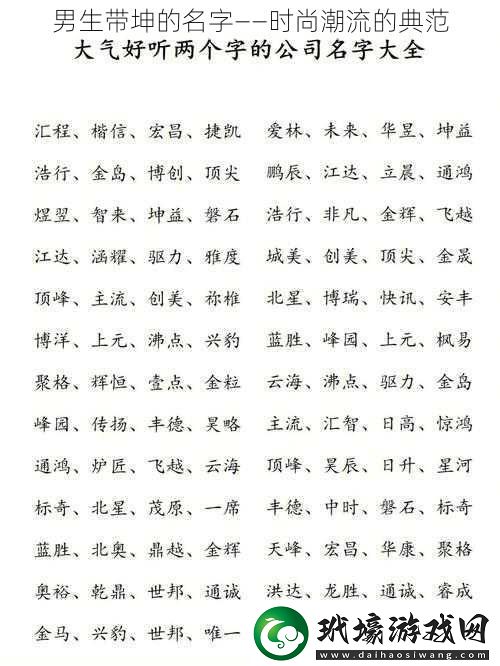 男生带坤的名字——时尚潮流的典范
大气好听两个字的公司名字大全
汇程、楷信、宏昌、捷凯 爱林、未来、华昱、坤益
浩行、金岛、博创、顶尖 鹏辰、江达、立晨、通鸿
煜翌、智来、坤益、磐石 浩行、非凡、金辉、飞越
江达、涵耀、驱力、雅度 城美、创美、顶尖、金晟
顶峰、主流、创美、祢椎 北星、博瑞、快讯、安丰
博洋、上元、沸点、兴豹 蓝胜、峰园、上元、枫易
聚格、辉恒、壹点、金粒 云海、沸点、驱力、金岛
峰园、传扬、丰德、昊略 主流、汇智、日高、惊鸿
通鸿、炉匠、飞越、云海 顶峰、昊辰、日升、星河
标奇、北星、茂原、一席 丰德、中时、磐石、标奇
蓝胜、北奥、鼎越、金辉 天峰、宏昌、华康、聚格
奥裕、乾鼎、世邦、通诚 洪达、龙胜、通诚、睿成
金马、兴豹、世邦、唯一
玳壕游戏网
www.daihaosiwang.com